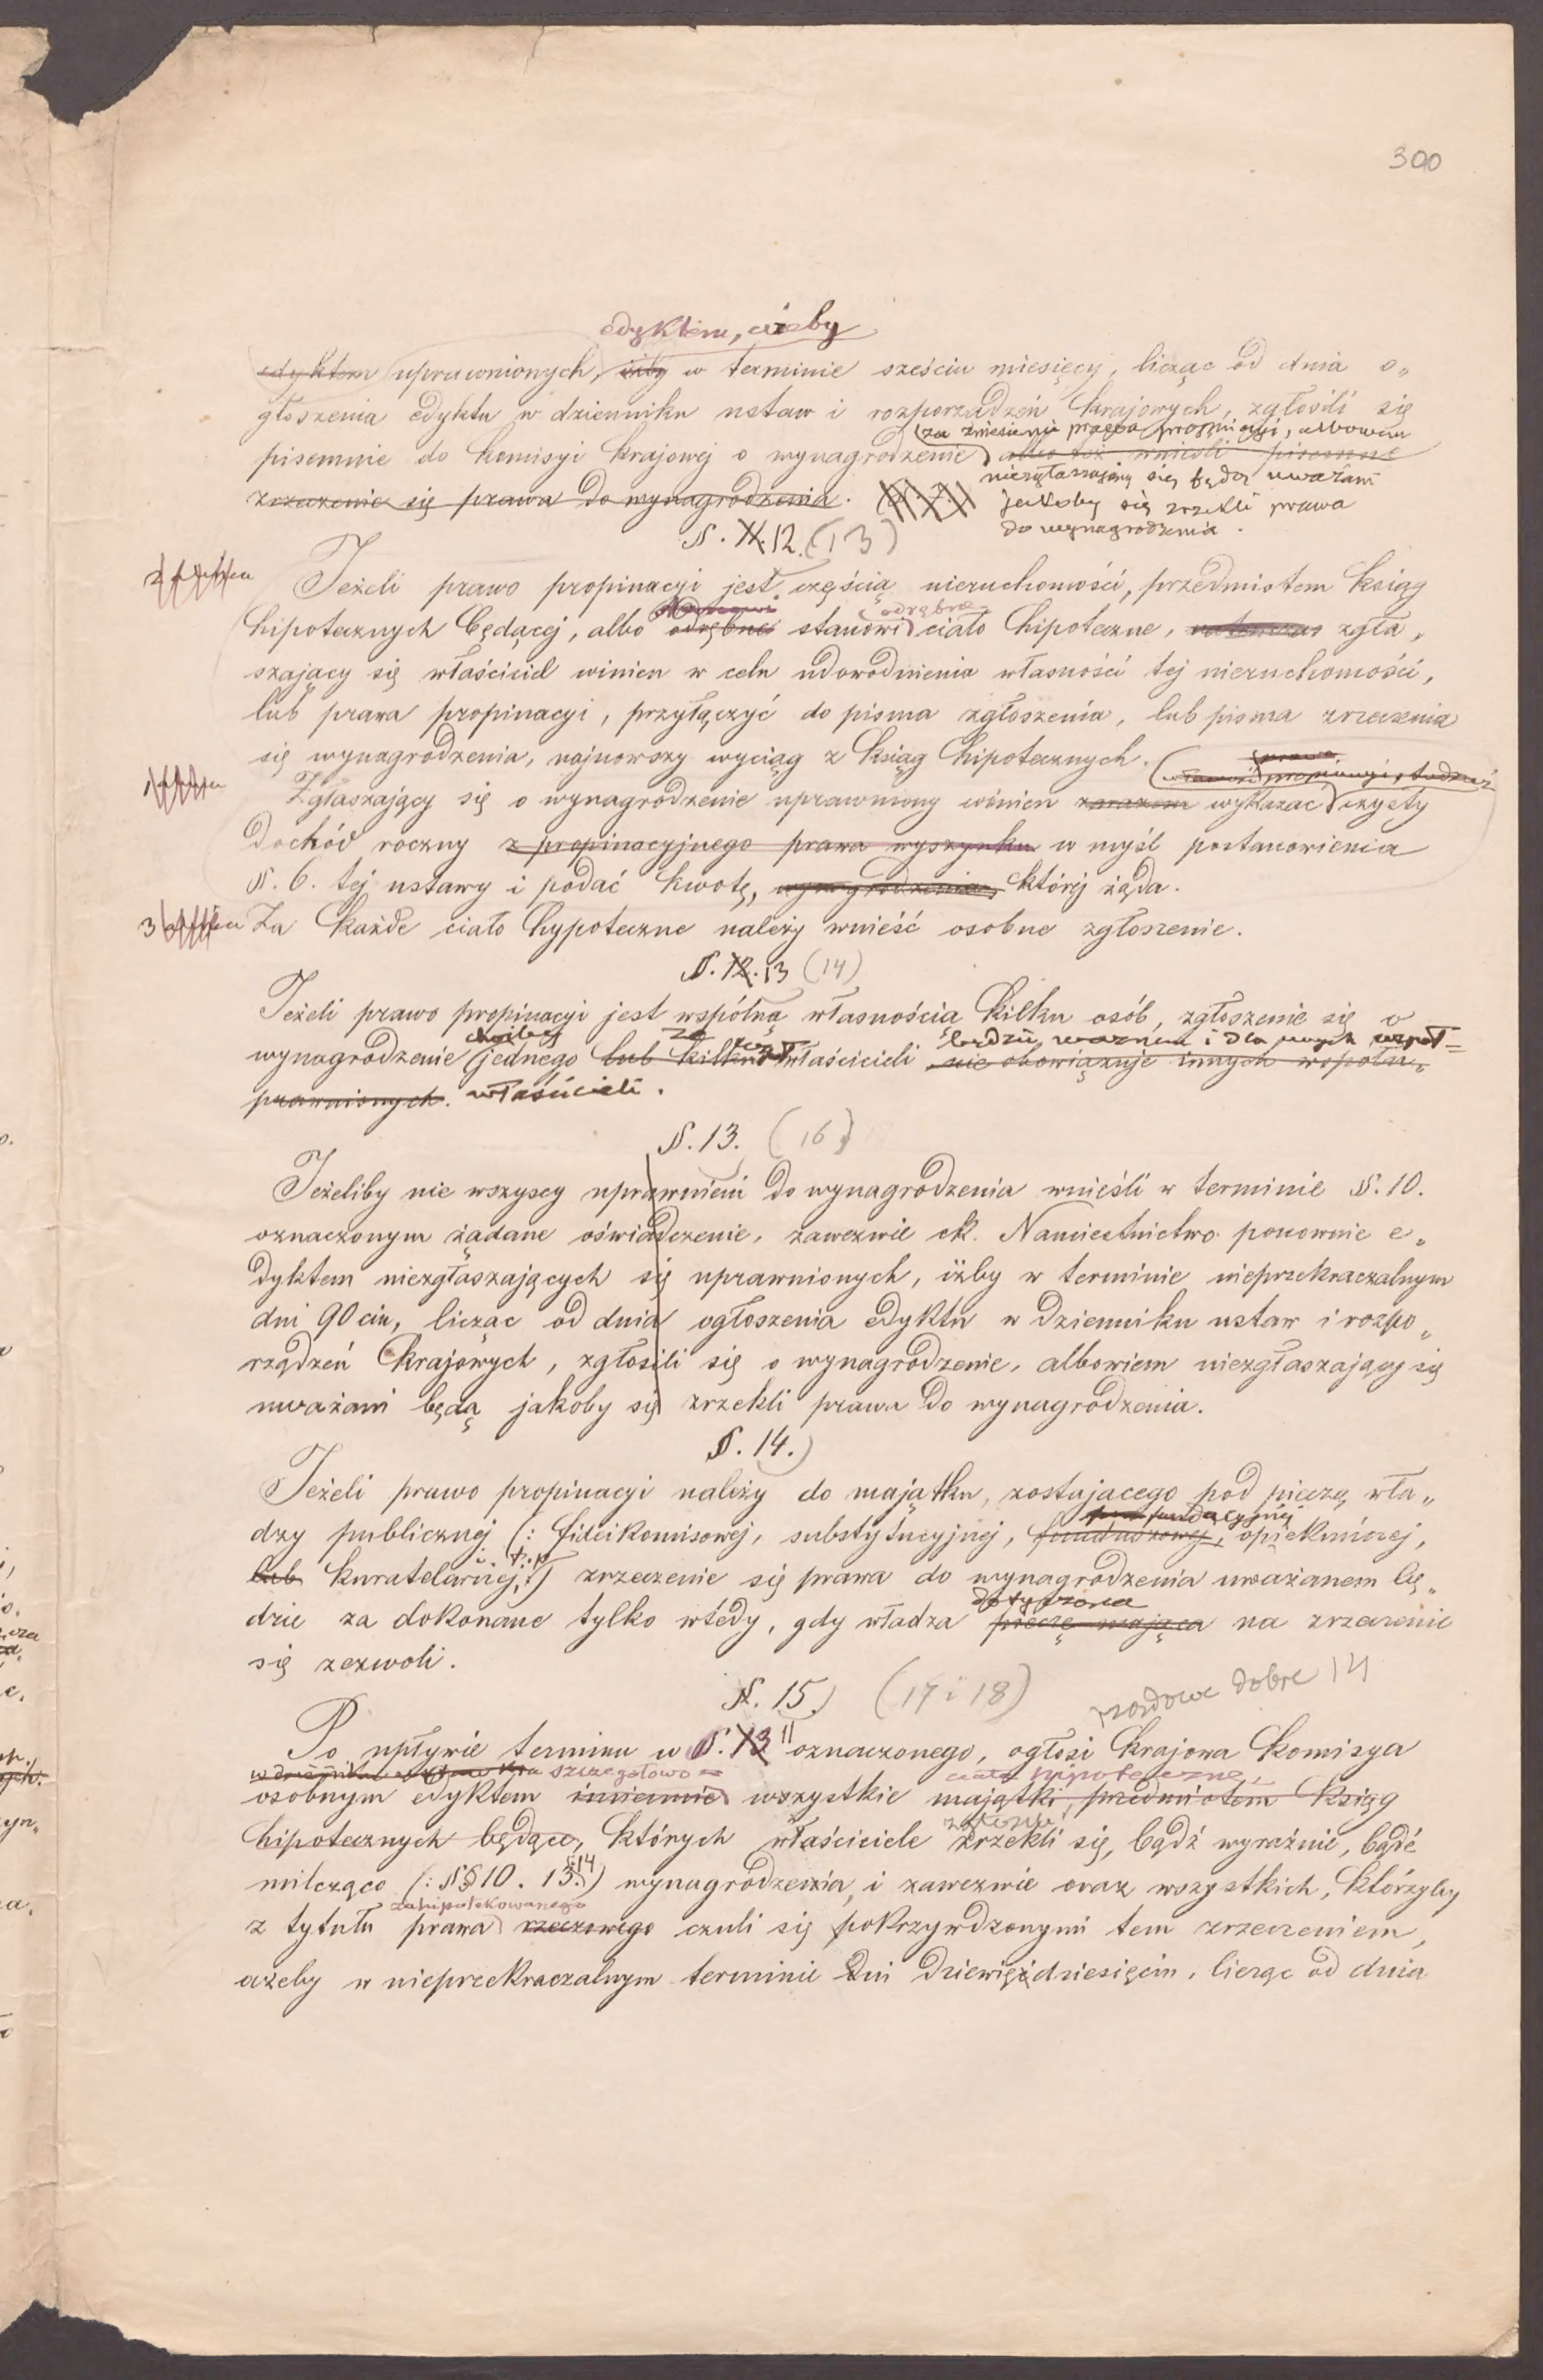 300
edyktem, ażeby
edyktem uprawnionych, iżby w terminie sześciu miesięcy, licząc od dnia o„
głoszenia edyktu w dzienniku ustaw i rozporządzeń krajowych, zgłosili się
(za zniesienie prawa propinacyi, albowiem
pisemnie do Komisyi krajowej o wynagrodzenie albo też wnieśli pisemne
niezgłaszający się będą uważani
zrzeczenie się prawa do wynagrodzenia. jakoby się zrzekli prawa
do wynagrodzenia.
§. 11. 12. (13)
2
Jeżeli prawo propinacyi jest częścią nieruchomości, przedmiotem ksiąg
odrębne
hipotecznych będącej, albo odrębne stanowi ciało hipoteczne, natenczas zgła„
szający się właściciel winien w celu udowodnienia własności tej nieruchomości,
lub prawa propinacyi, przyłączyć do pisma zgłoszenia, lub pisma zrzeczenia
się wynagrodzenia, najnowszy wyciąg z ksiąg hipotecznych.
prawa
własność propinacyi, tudzież
1
Zgłaszający się o wynagrodzenie uprawniony winien zarazem wykazać czysty
dochód roczny z propinacyjnego prawa wyszynku w myśl postanowienia
§. 6. tej ustawy i podać kwotę, wynagrodzenia, której żąda.
3 Za każde ciało hypoteczne należy wnieść osobne zgłoszenie.
§. 12. 13 (14)
Jeżeli prawo propinacyi jest wspólną własnością kilku osób, zgłoszenie się o
choćby ze będzie ważnem i dla innych współ=
wynagrodzenie jednego lub kilku właścicieli nie obowiązuje innych współu„
prawnionych. właścicieli.
§. 13. (16)
Jeżeliby nie wszyscy uprawnieni do wynagrodzenia wnieśli w terminie §. 10.
oznaczonym żądane oświadczenie, zawezwie ck. Namiestnictwo ponownie e„
dyktem niezgłaszających się uprawnionych, iżby w terminie nieprzekraczalnym
dni 90ciu, licząc od dnia ogłoszenia edyktu w dzienniku ustaw i rozpo„
rządzeń krajowych, zgłosili się o wynagrodzenie, albowiem niezgłaszający się
uważani będą jakoby się zrzekli prawa do wynagrodzenia.
§. 14.)
Jeżeli prawo propinacyi należy do majątku, zostajacego pod pieczą wła„
fundacyjnej
dzy publicznej (: fideikomisowej, substytucyjnej, funduszowej, opiekuńczej,
i t. p.
lub kuratelarnej,:) zrzeczenie się prawa do wynagrodzenia uważanem bę„
dotycząca
dzie za dokonane tylko wtedy, gdy władza pieczę mająca na zrzeczenie
się zezwoli.
§. 15.) (17 i 18)
rządowe dobre 14
Po upływie terminu w §. 13 11 oznaczonego, ogłosi krajowa Komisya
szczegółowo ciała hipoteczne,
osobnym edyktem imiennie wszystkie majątki, przedmiotem ksiąg
hipotecznych będące, których właściciele zrzekli się, bądź wyraźnie, bądź
i 14
milcząco (: §§ 10. 13.:) wynagrodzenia, i zawezwie oraz wszystkich, którzyby
zahipotekowanego
z tytułu prawa rzeczowego czuli się pokrzywdzonymi tem zrzeczeniem,
ażeby w nieprzekraczalnym terminie dni dziewięćdziesięciu, licząc od dnia